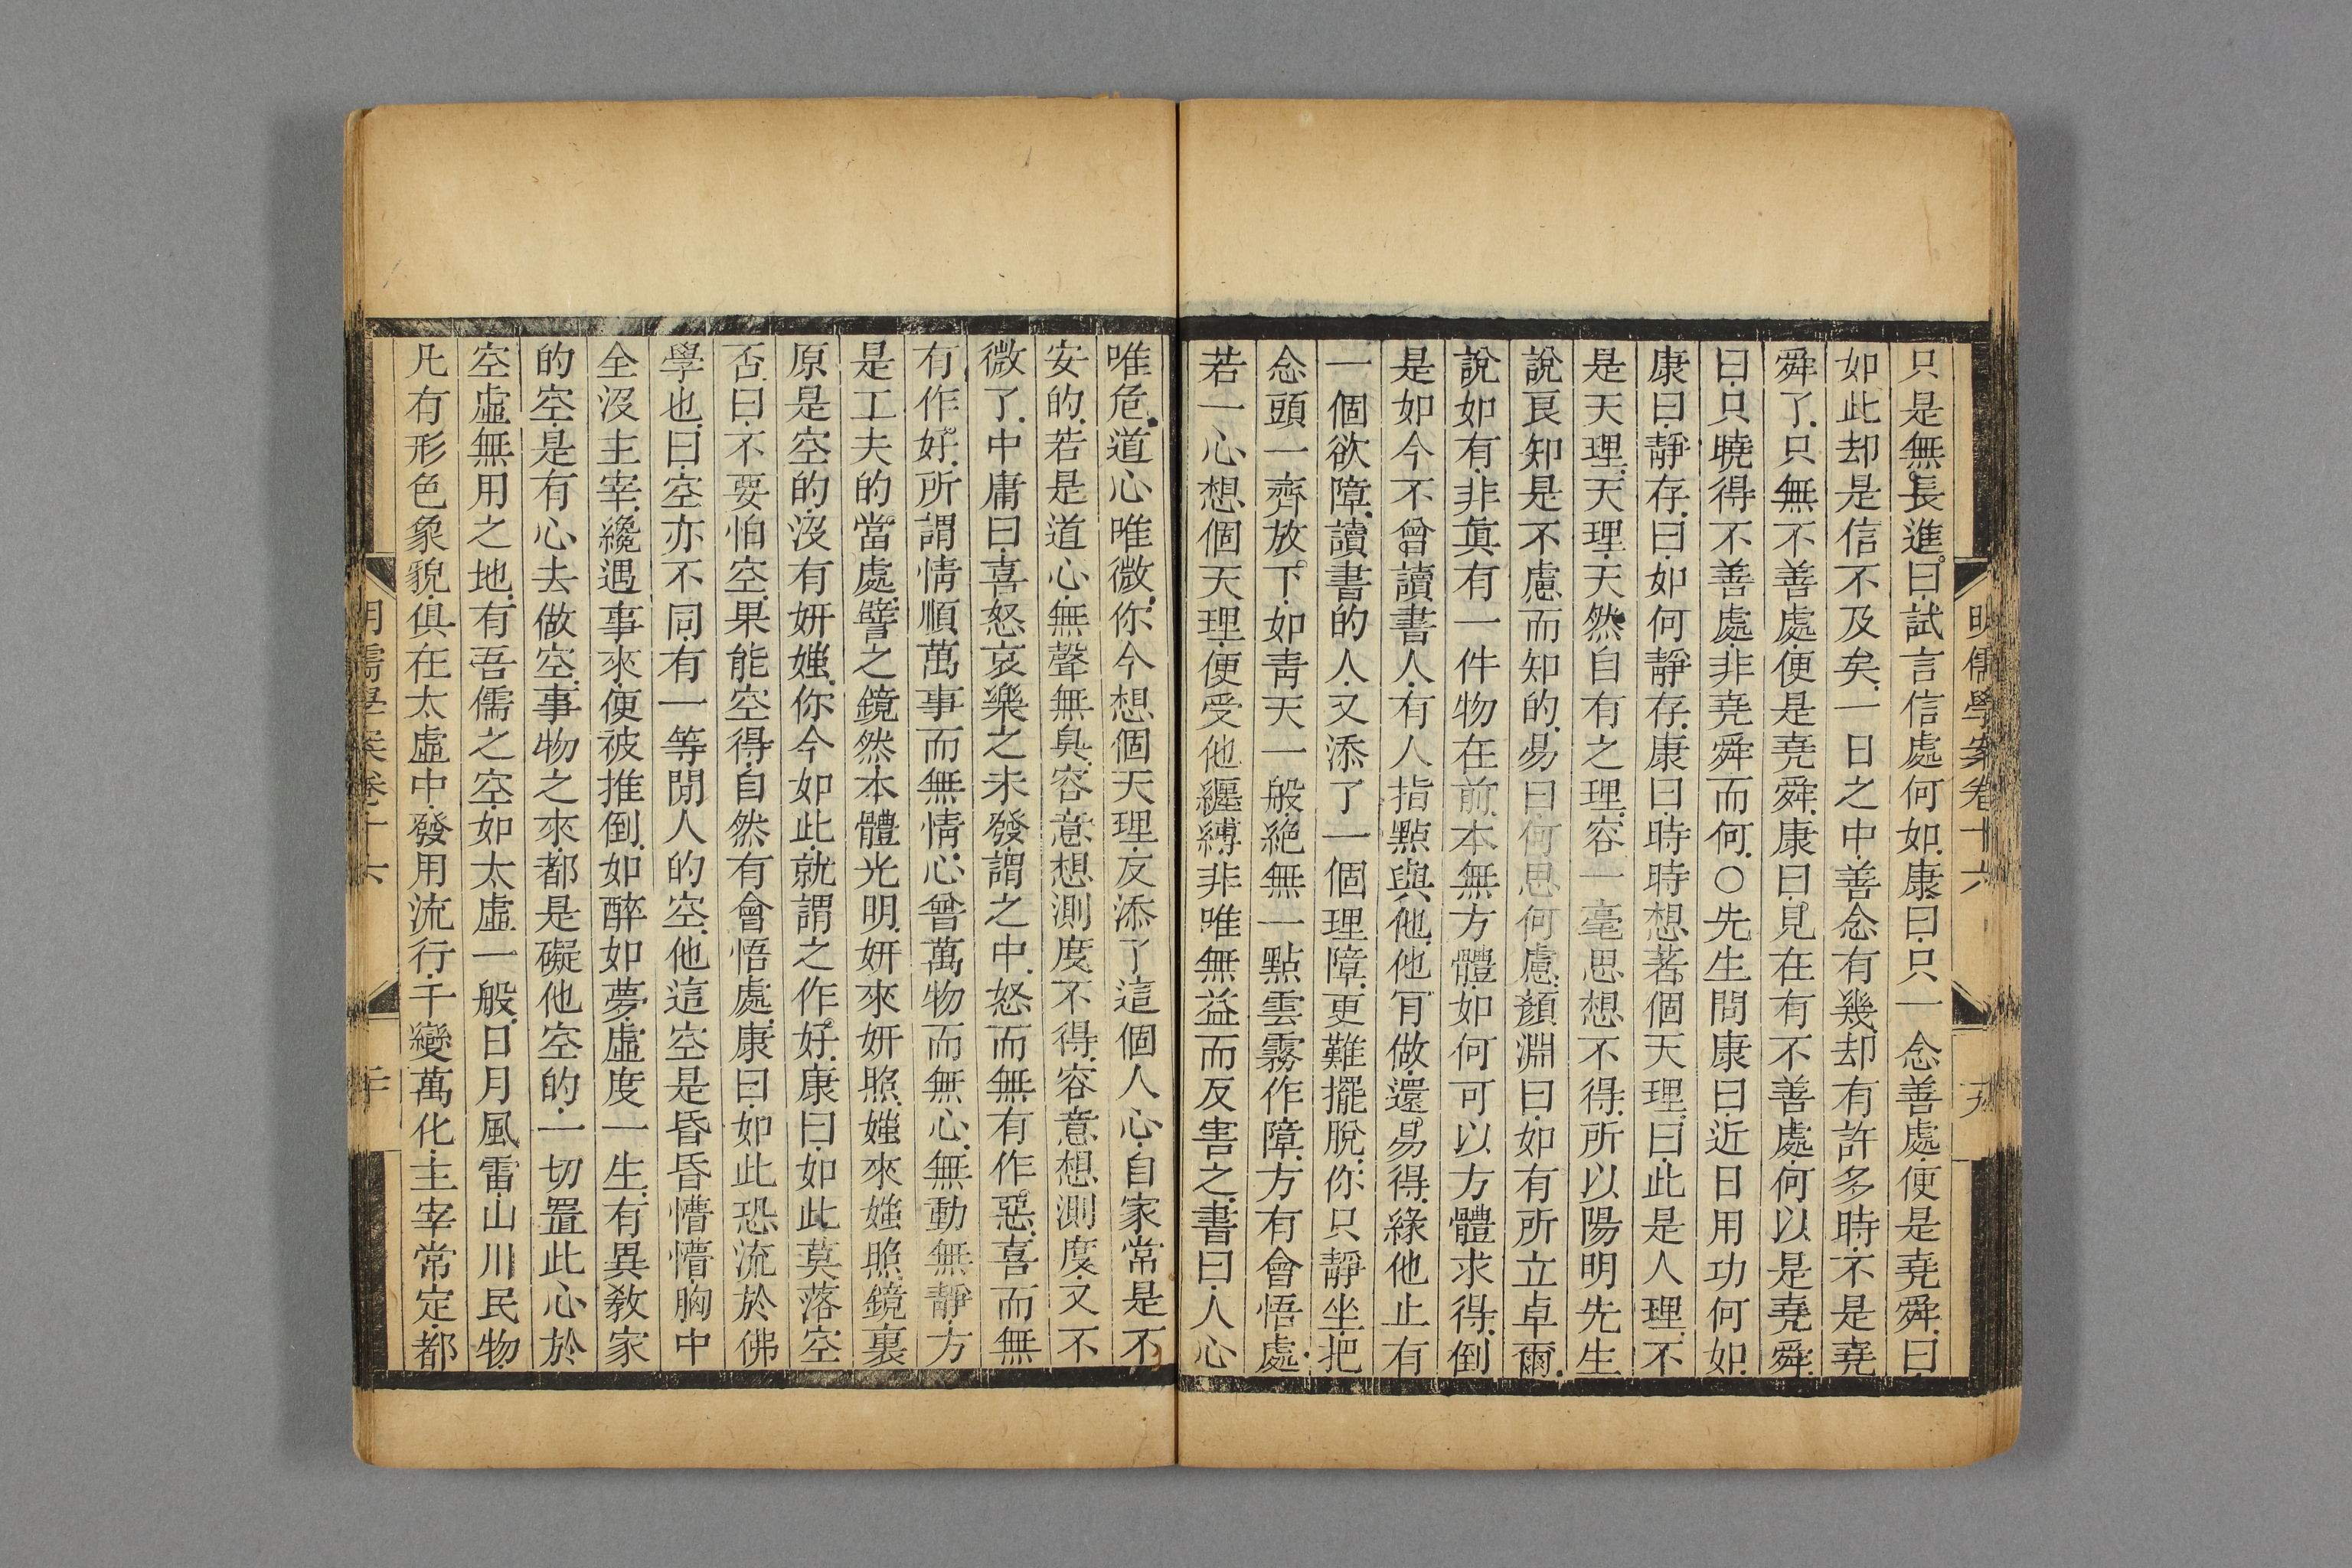 明儒學案卷十六
十九
只是無長進曰試言信處何如康曰只一念善處便是堯舜曰
如此却是信不及矣一日之中善念有幾却有許多時不是堯
舜了只無不善處便是堯舜康曰見在有不善處何以是堯舜
曰只曉得不善處非堯舜而何〇先生問康曰近日用功何如
康曰靜存曰如何靜存康曰時時想著個天理曰此是人理不
是天理天理天然自有之理容一毫思想不得所以陽明先生
說良知是不慮而知的易曰何思何慮顏淵曰如有所立卓爾
說如有非眞有一件物在前本無方體如何可以方體求得倒
是如今不曾讀書人有人指點與他他肯做還易得緣他止有
一個欲障讀書的人又添了一個理障更難擺脫你只靜坐把
念頭一齊放下如靑天一般絕無一點雲霧作障方有會悟處
若一心想個天理便受他纏縛非唯無益而反害之書曰人心
唯危道心唯微你今想個天理反添了這個人心自家常是不
安的若是道心無聲無臭容意想測度不得容意想測度又不
微了中庸曰喜怒哀樂之未發謂之中怒而無有作惡喜而無
有作好所謂情順萬事而無情心曾萬物而無心無動無靜方
是工夫的當處譬之鏡然本體光明妍來妍照媸來媸照鏡裏
原是空的沒有妍媸你今如此就謂之作好康曰如此莫落空
否曰不要怕空果能空得自然有會悟處康曰如此恐流於佛
學也曰空亦不同有一等閒人的空他這空是昏昏懵懵胸中
全沒主宰纔遇事來便被推倒如醉如夢虛度一生有異敎家
的空是有心去做空事物之來都是礙他空的一切置此心於
空虛無用之地有吾儒之空如太虛一般日月風雷山川民物
凡有形色象貌俱在太虛中發用流行千變萬化主宰常定都
明儒學案卷十六
二十